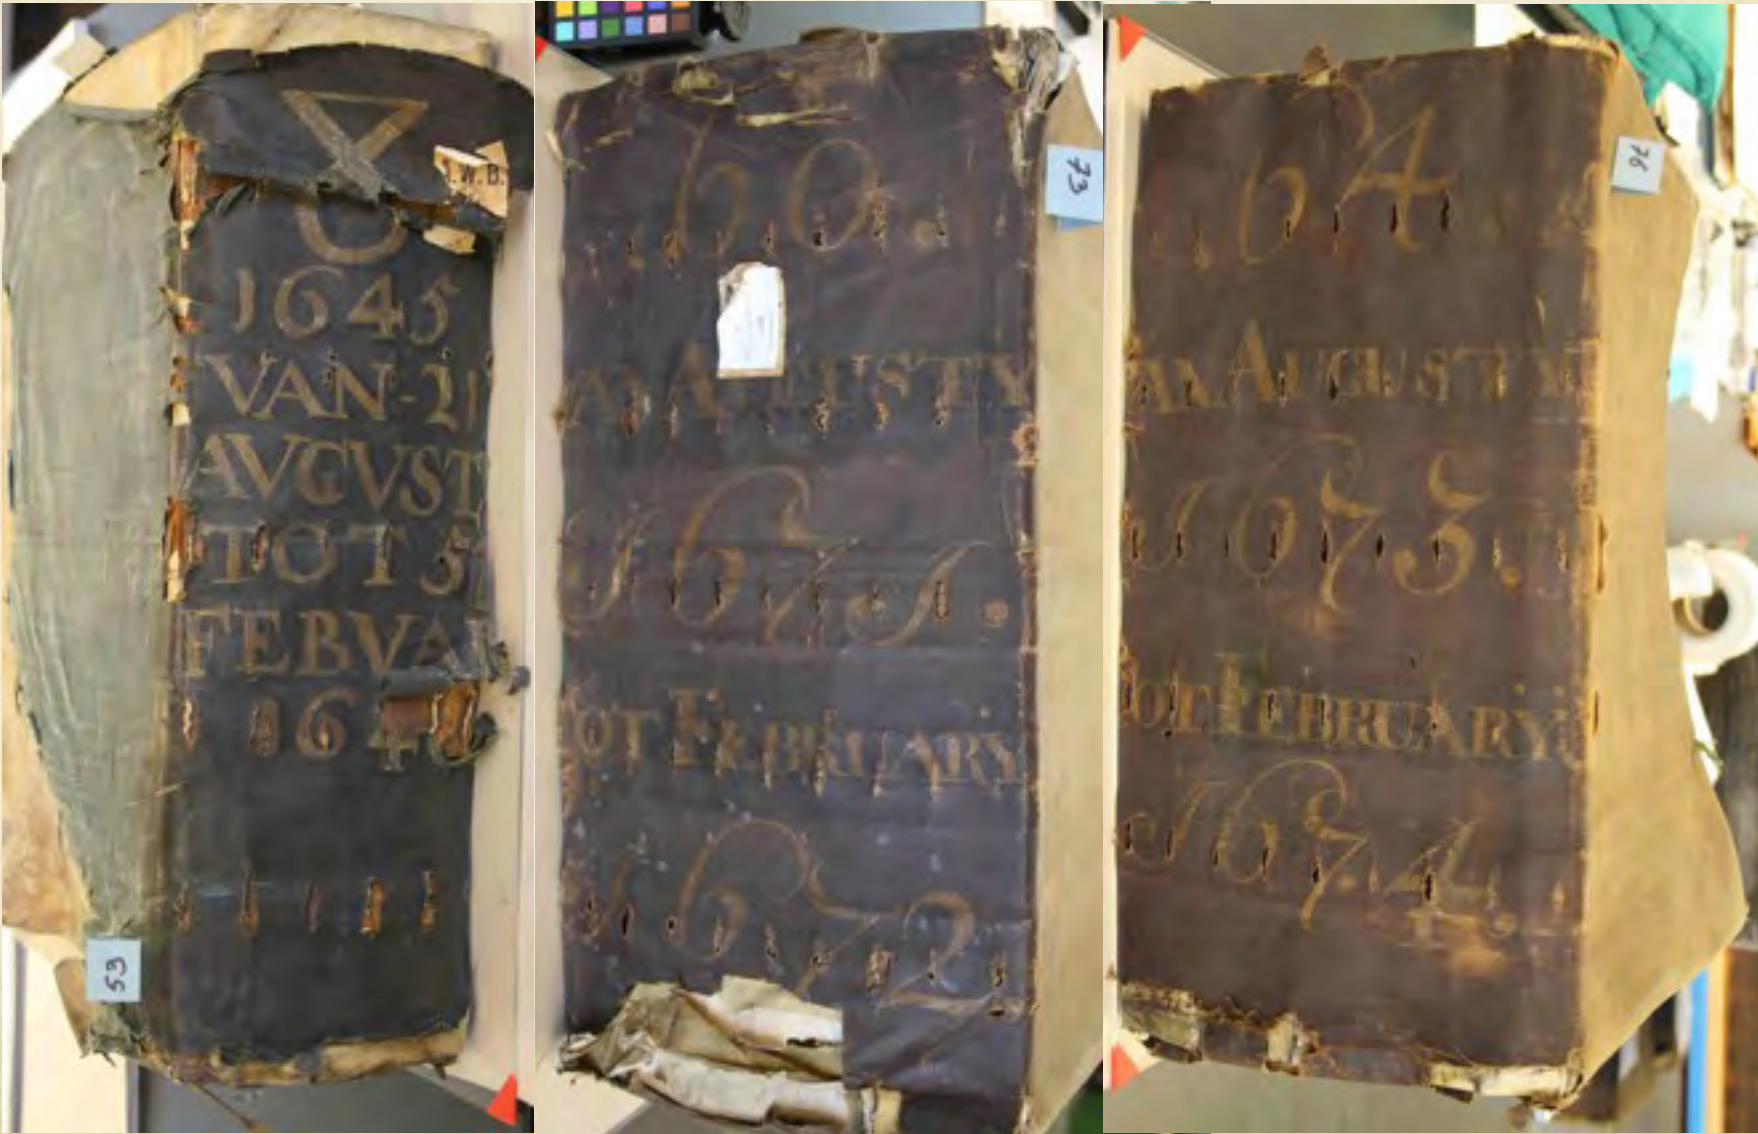 8
.W.B.
1645
VAN-21
AVGVST
TOT 5
FEBVAR
1646
53
60.
AN AUGUSTY
1671.
OT FEBRUARY
1672
73
64
AN AUGUSTY
1673.
OT FEBRUARY
1674.
76